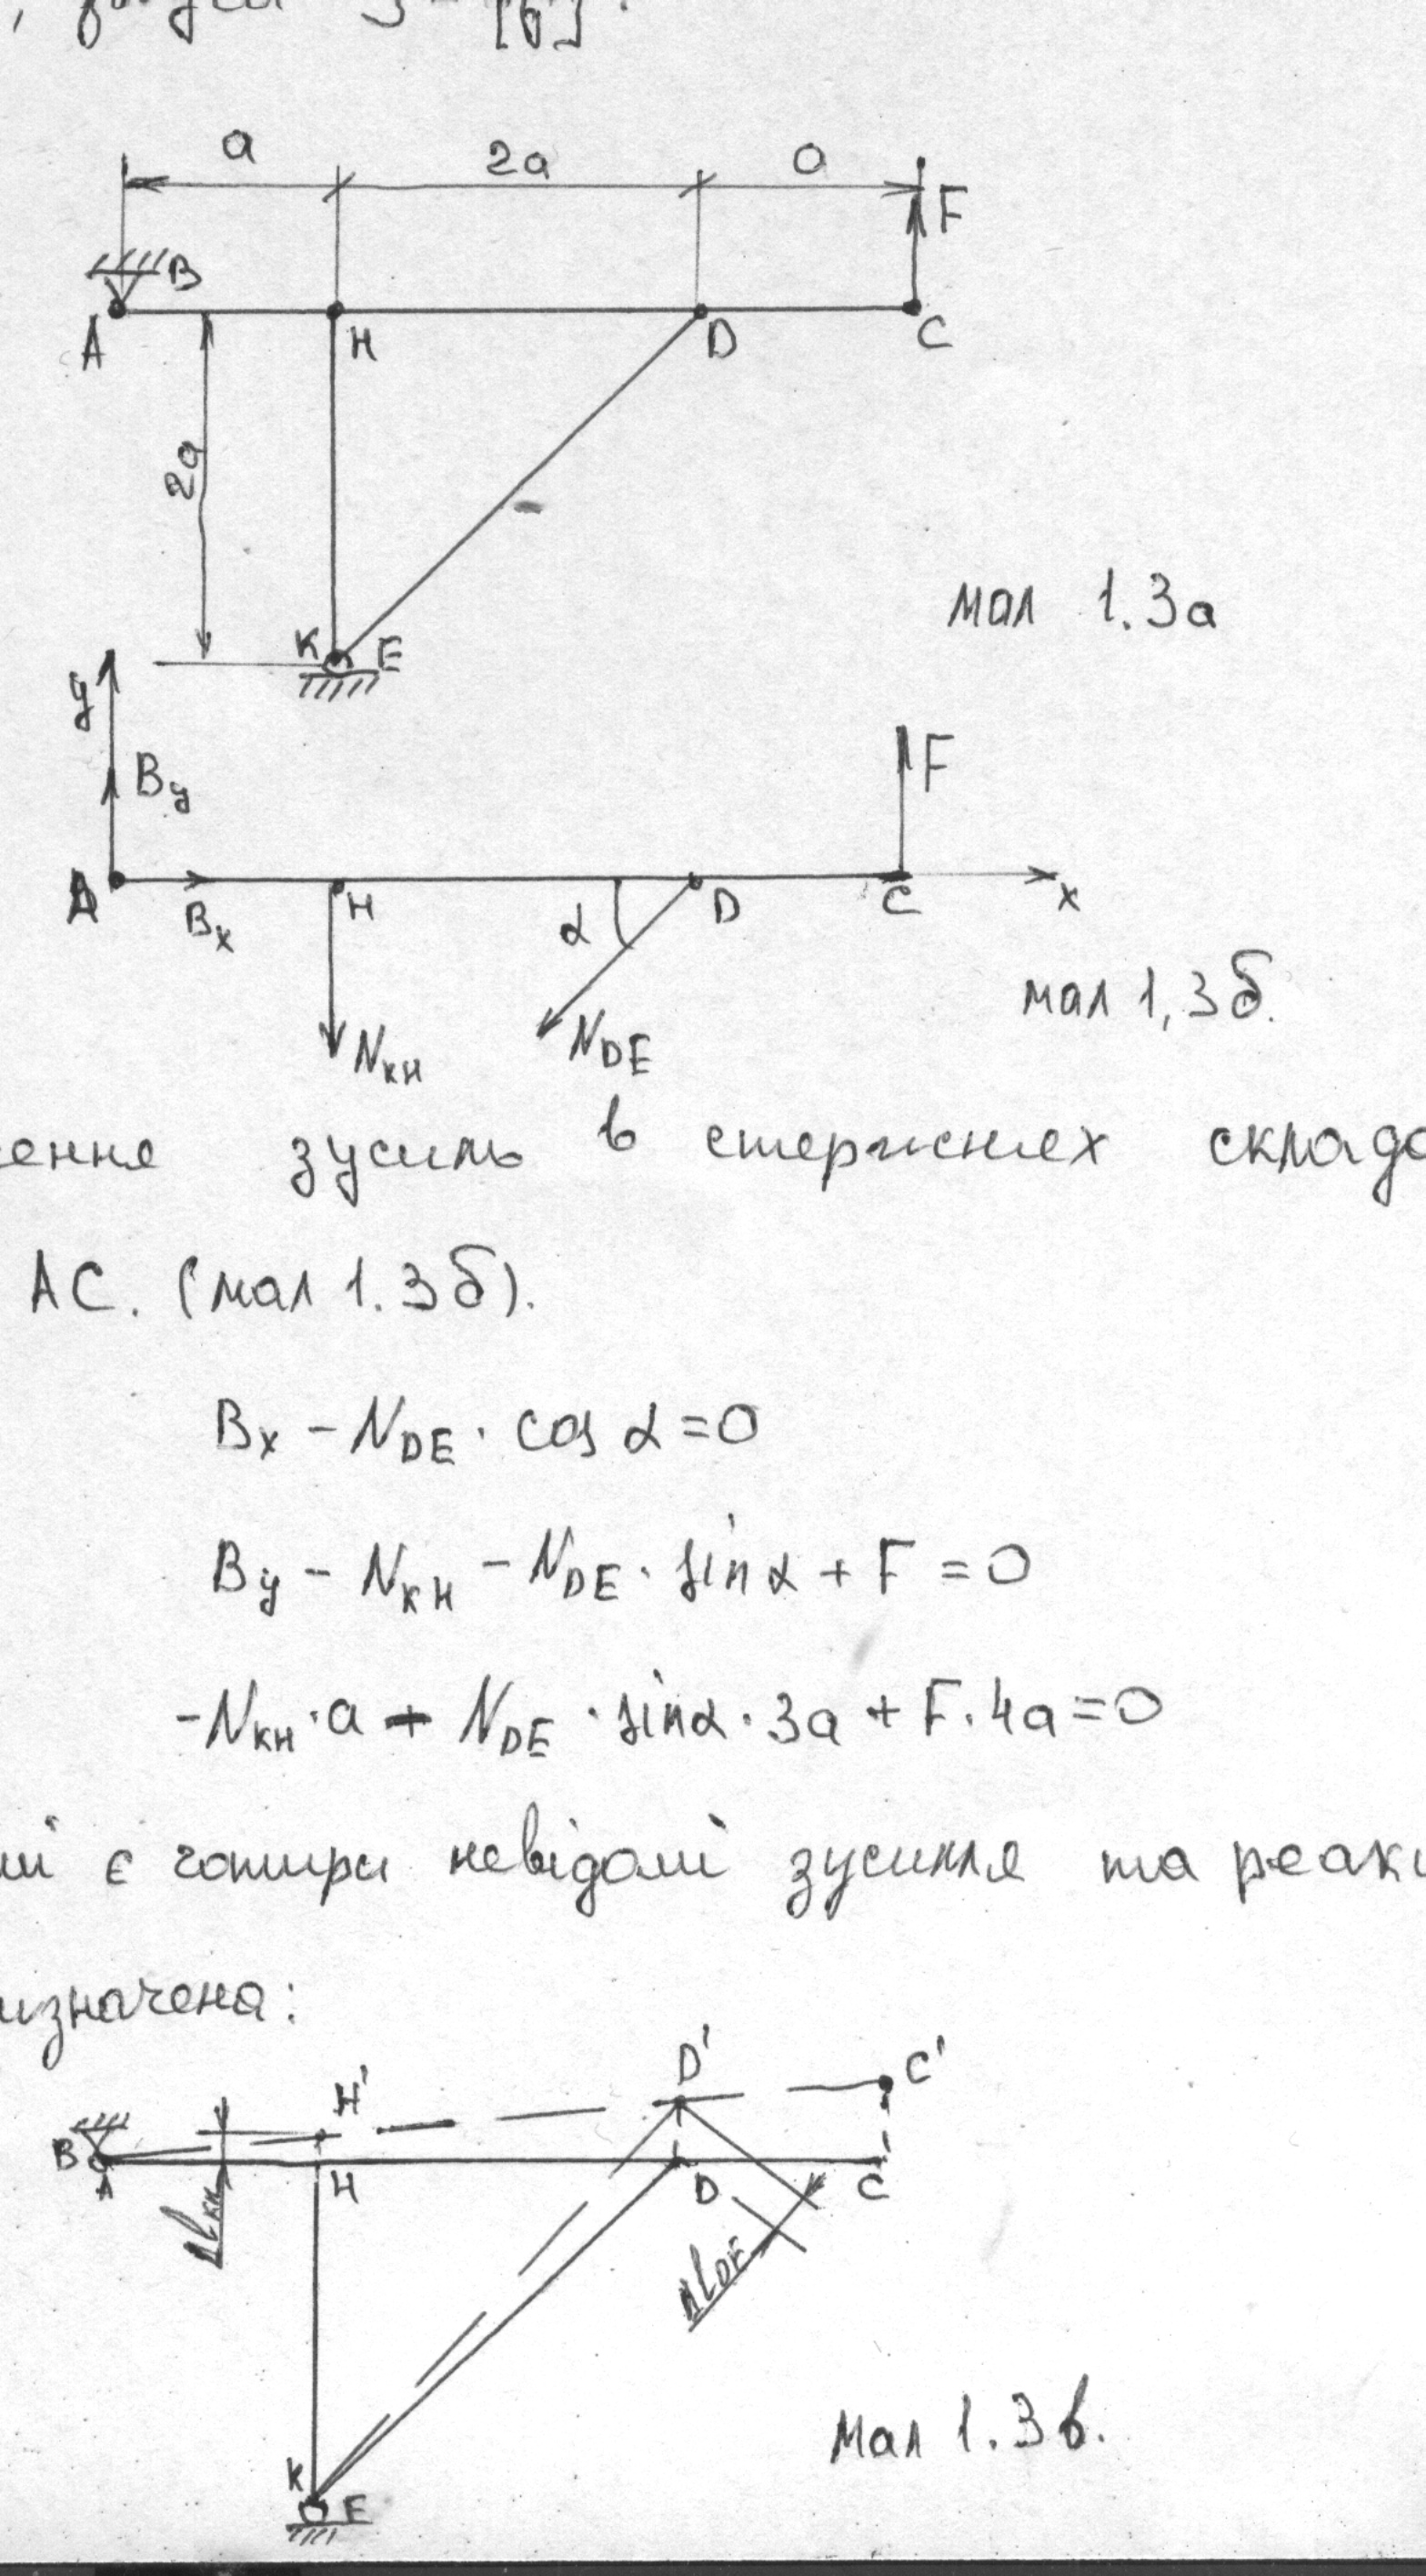 a 2a a
F
B
A H D C
2a
K E
мал 1.3а
y
By
F
A Bx H α D C x
NKH NDE
мал 1,3б.
зусиль в стержнях
AC. (мал 1.3б).
Bx - NDE · cos α = 0
By - NKH - NDE · sin α + F = 0
-NKH · a - NDE · sin α · 3a + F · 4a = 0
є чотири невідомі зусилля та
изначена:
D' C'
H'
B
A H D C
ΔlKH ΔlDE
K E
Мал 1.3в.